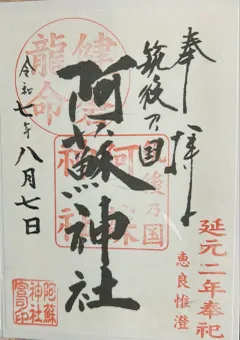 奉拝
筑後乃国
阿蘇神社
令和七年八月七日
健磐龍命
筑後乃国
阿蘇神社
延元二年奉祀
恵良惟澄
阿蘇神社宮司印